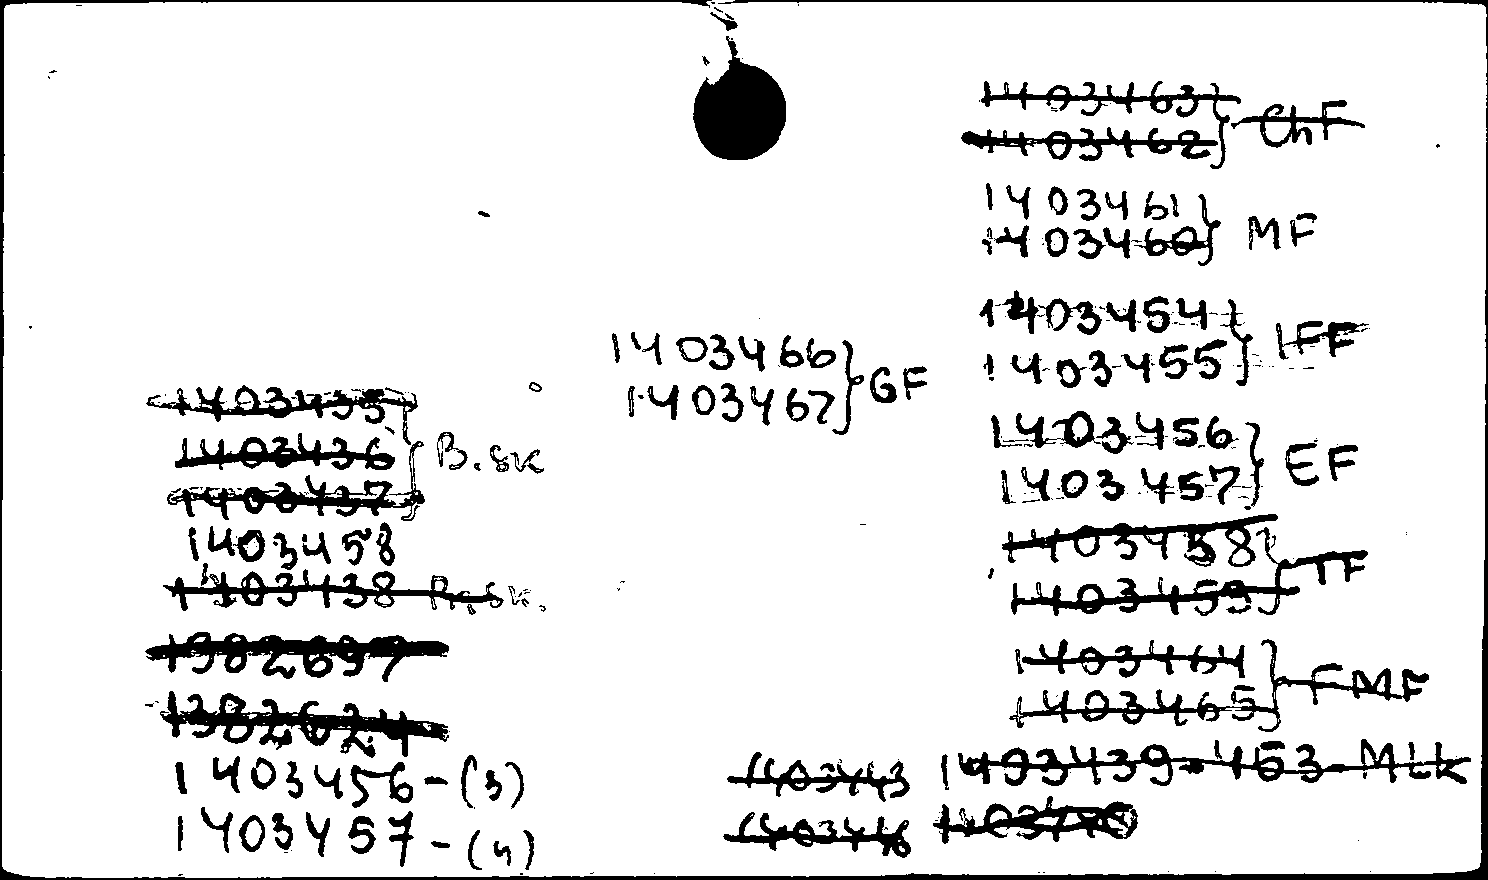 1403435
1403436 } B.sk
1403437
1403458
1403438 B.sk.
1382697
1382624
1403456-(3)
1403457-(4)
1403466
1403467 } GF
1403463
1403462 } ChF
1403461
1403460 } MF
1403454
1403455 } IFF
1403456
1403457 } EF
1403458
1403459 } TF
1403464
1403465 } FMF
1403443 1403439-453-MLK
1403446